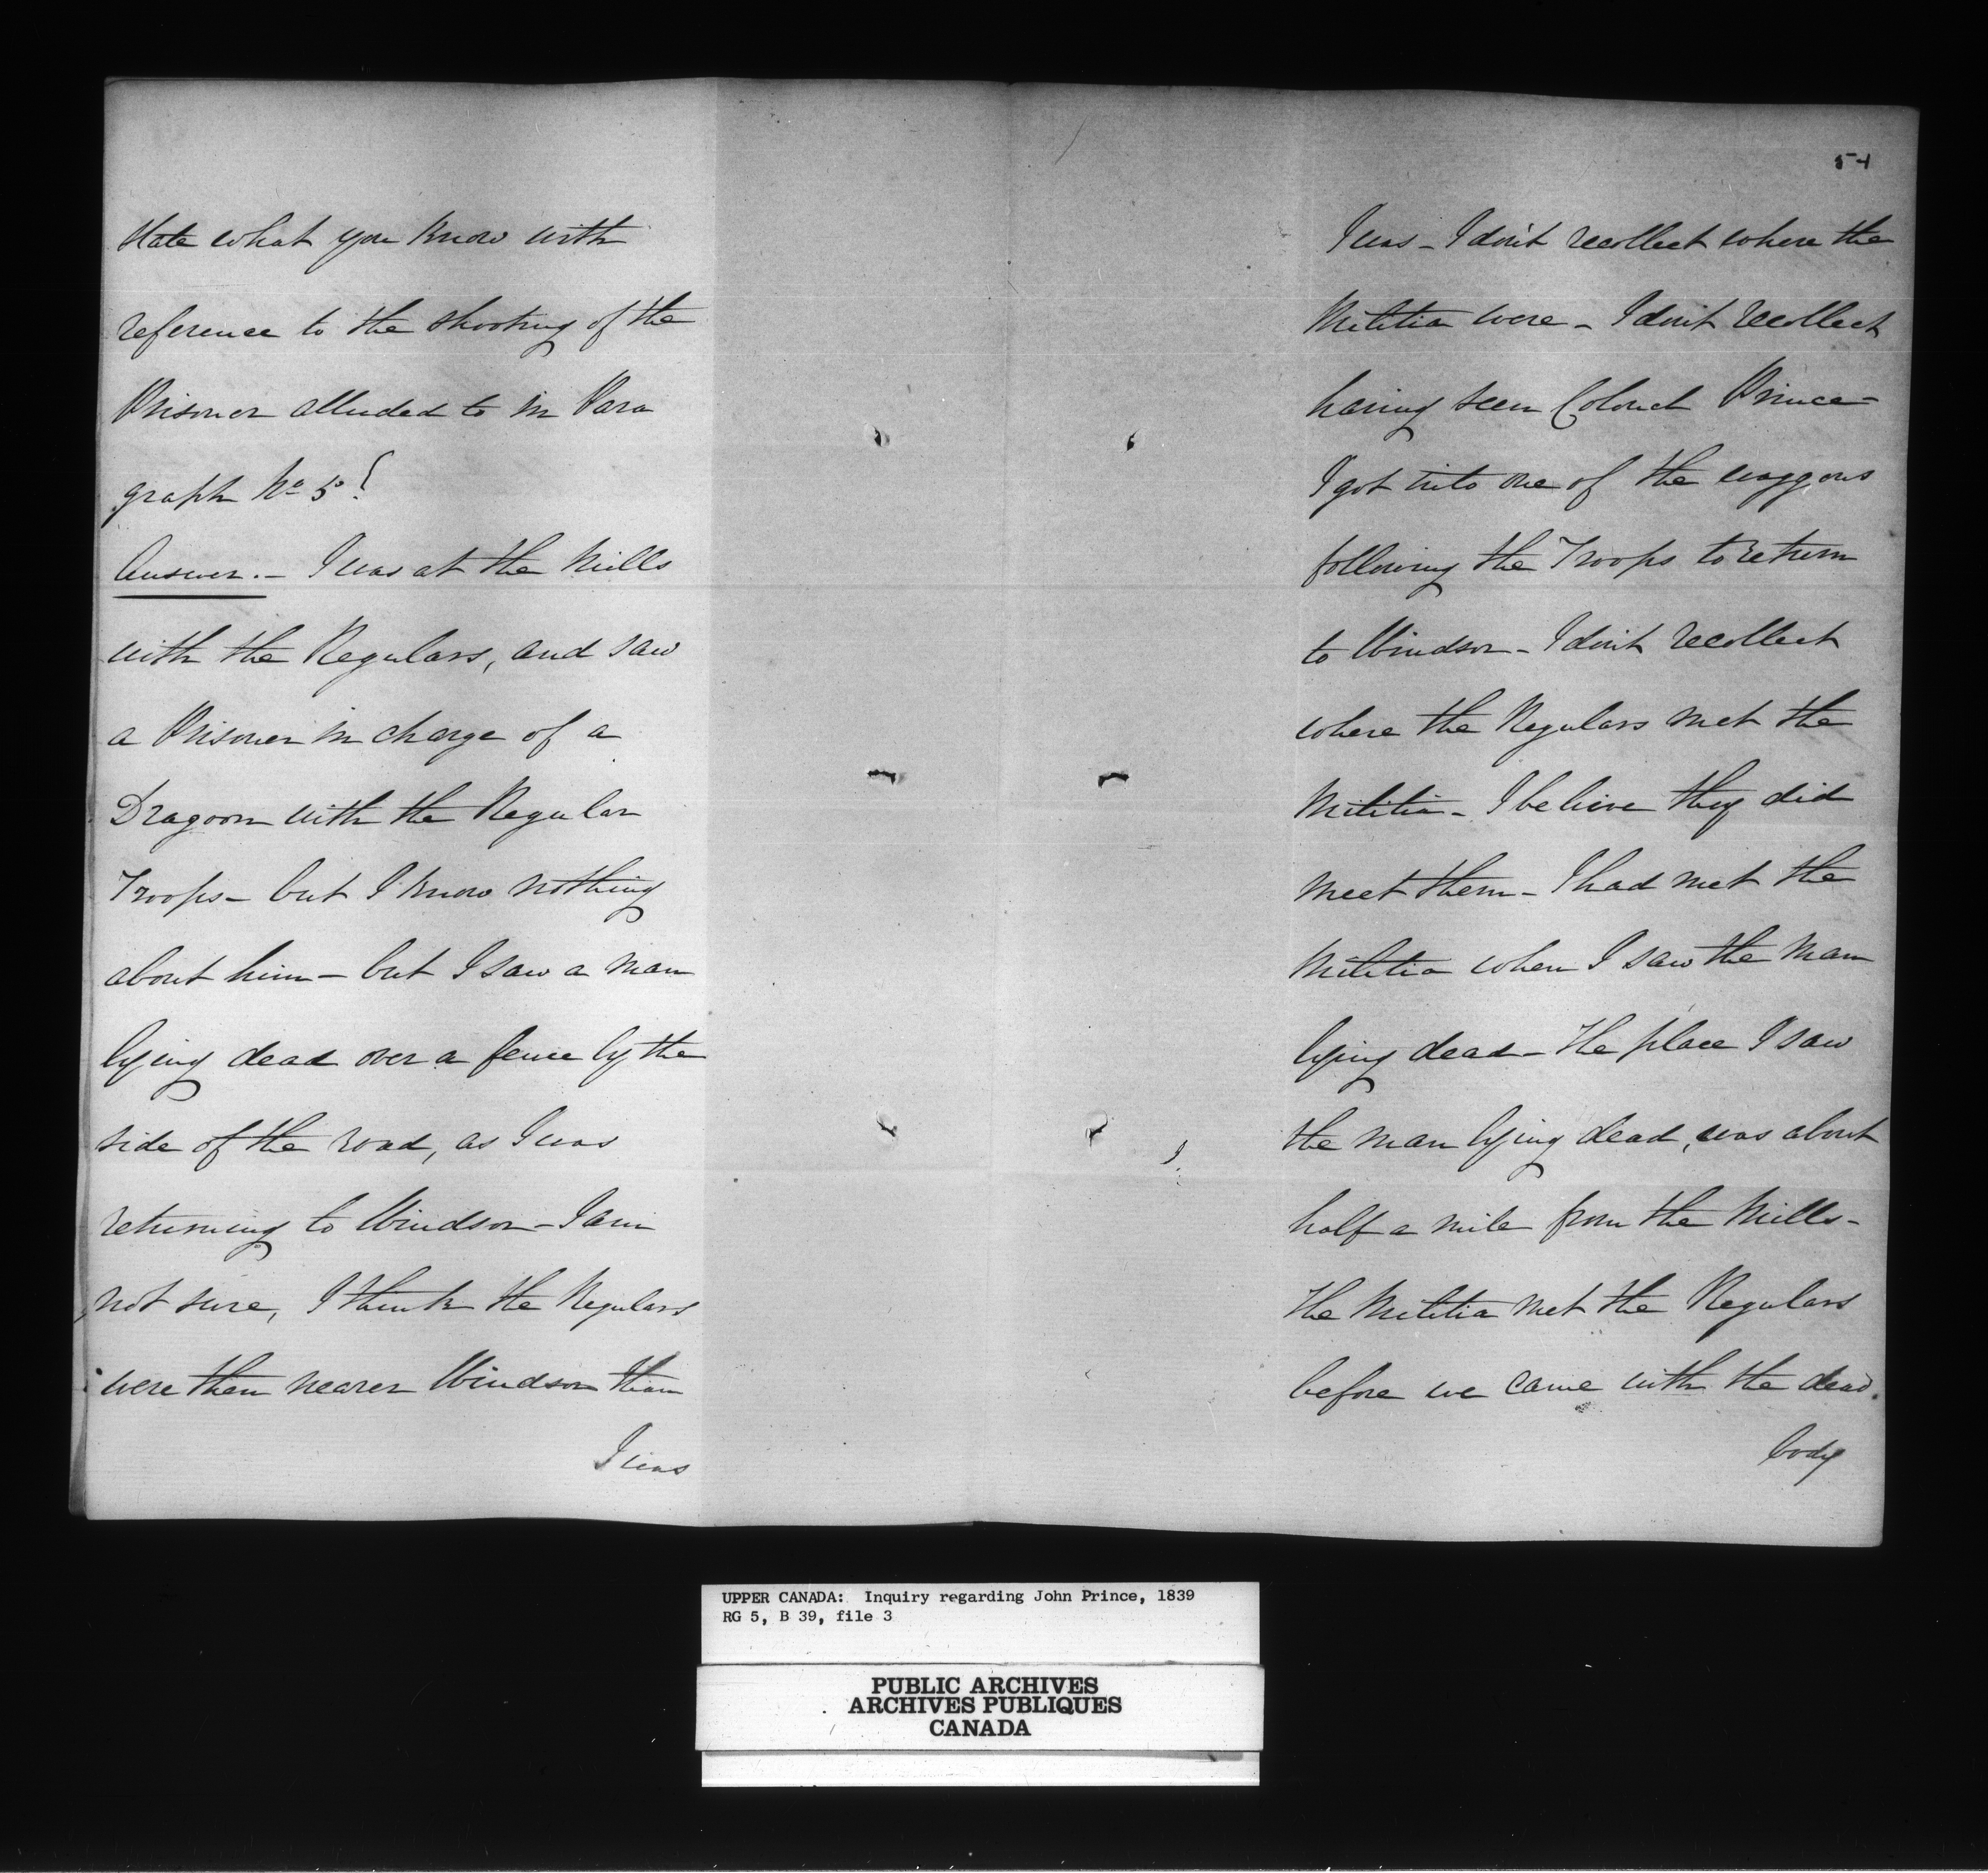 State what you know with
reference to the shooting of the
Prisoner alluded to in Para
graph No 5?
Answer. - I was at the Mills
with the Regulars, and saw
a Prisoner in charge of a
Dragoon with the Regular
Troops - but I know nothing
about him - but I saw a man
lying dead over a fence by the
side of the road, as I was
returning to Windsor - I am
not sure, I think the Regulars
were then nearer Windsor than
I was
I was - I don't recollect where the
Militia were - I don't recollect
having seen Colonel Prince -
I got into one of the waggons
following the Troops to return
to Windsor - I don't recollect
where the Regulars met the
Militia - I believe they did
meet them - I had met the
Militia when I saw the man
lying dead - The place I saw
the man lying dead, was about
half a mile from the Mills -
The Militia met the Regulars
before we came with the dead.
body
UPPER CANADA: Inquiry regarding John Prince, 1839
RG 5, B 39, file 3
PUBLIC ARCHIVES
ARCHIVES PUBLIQUES
CANADA